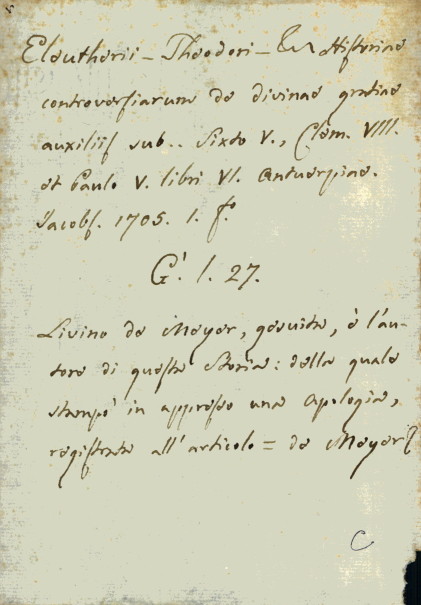 Eleutherii - Theodori - Historiae
controversiarum de divinae gratiae
auxiliis sub.. Sixto V., Clem. VIII.
et Paulo V. libri VI. Antuerpiae.
Jacobs. 1705. 1. f.º
G. l. 27.
Livino de Meyer, gesuita, è l'au-
tore di questa Storia: della quale
stampò in appresso una Apologia,
registrata all'articolo = de Meyer
C